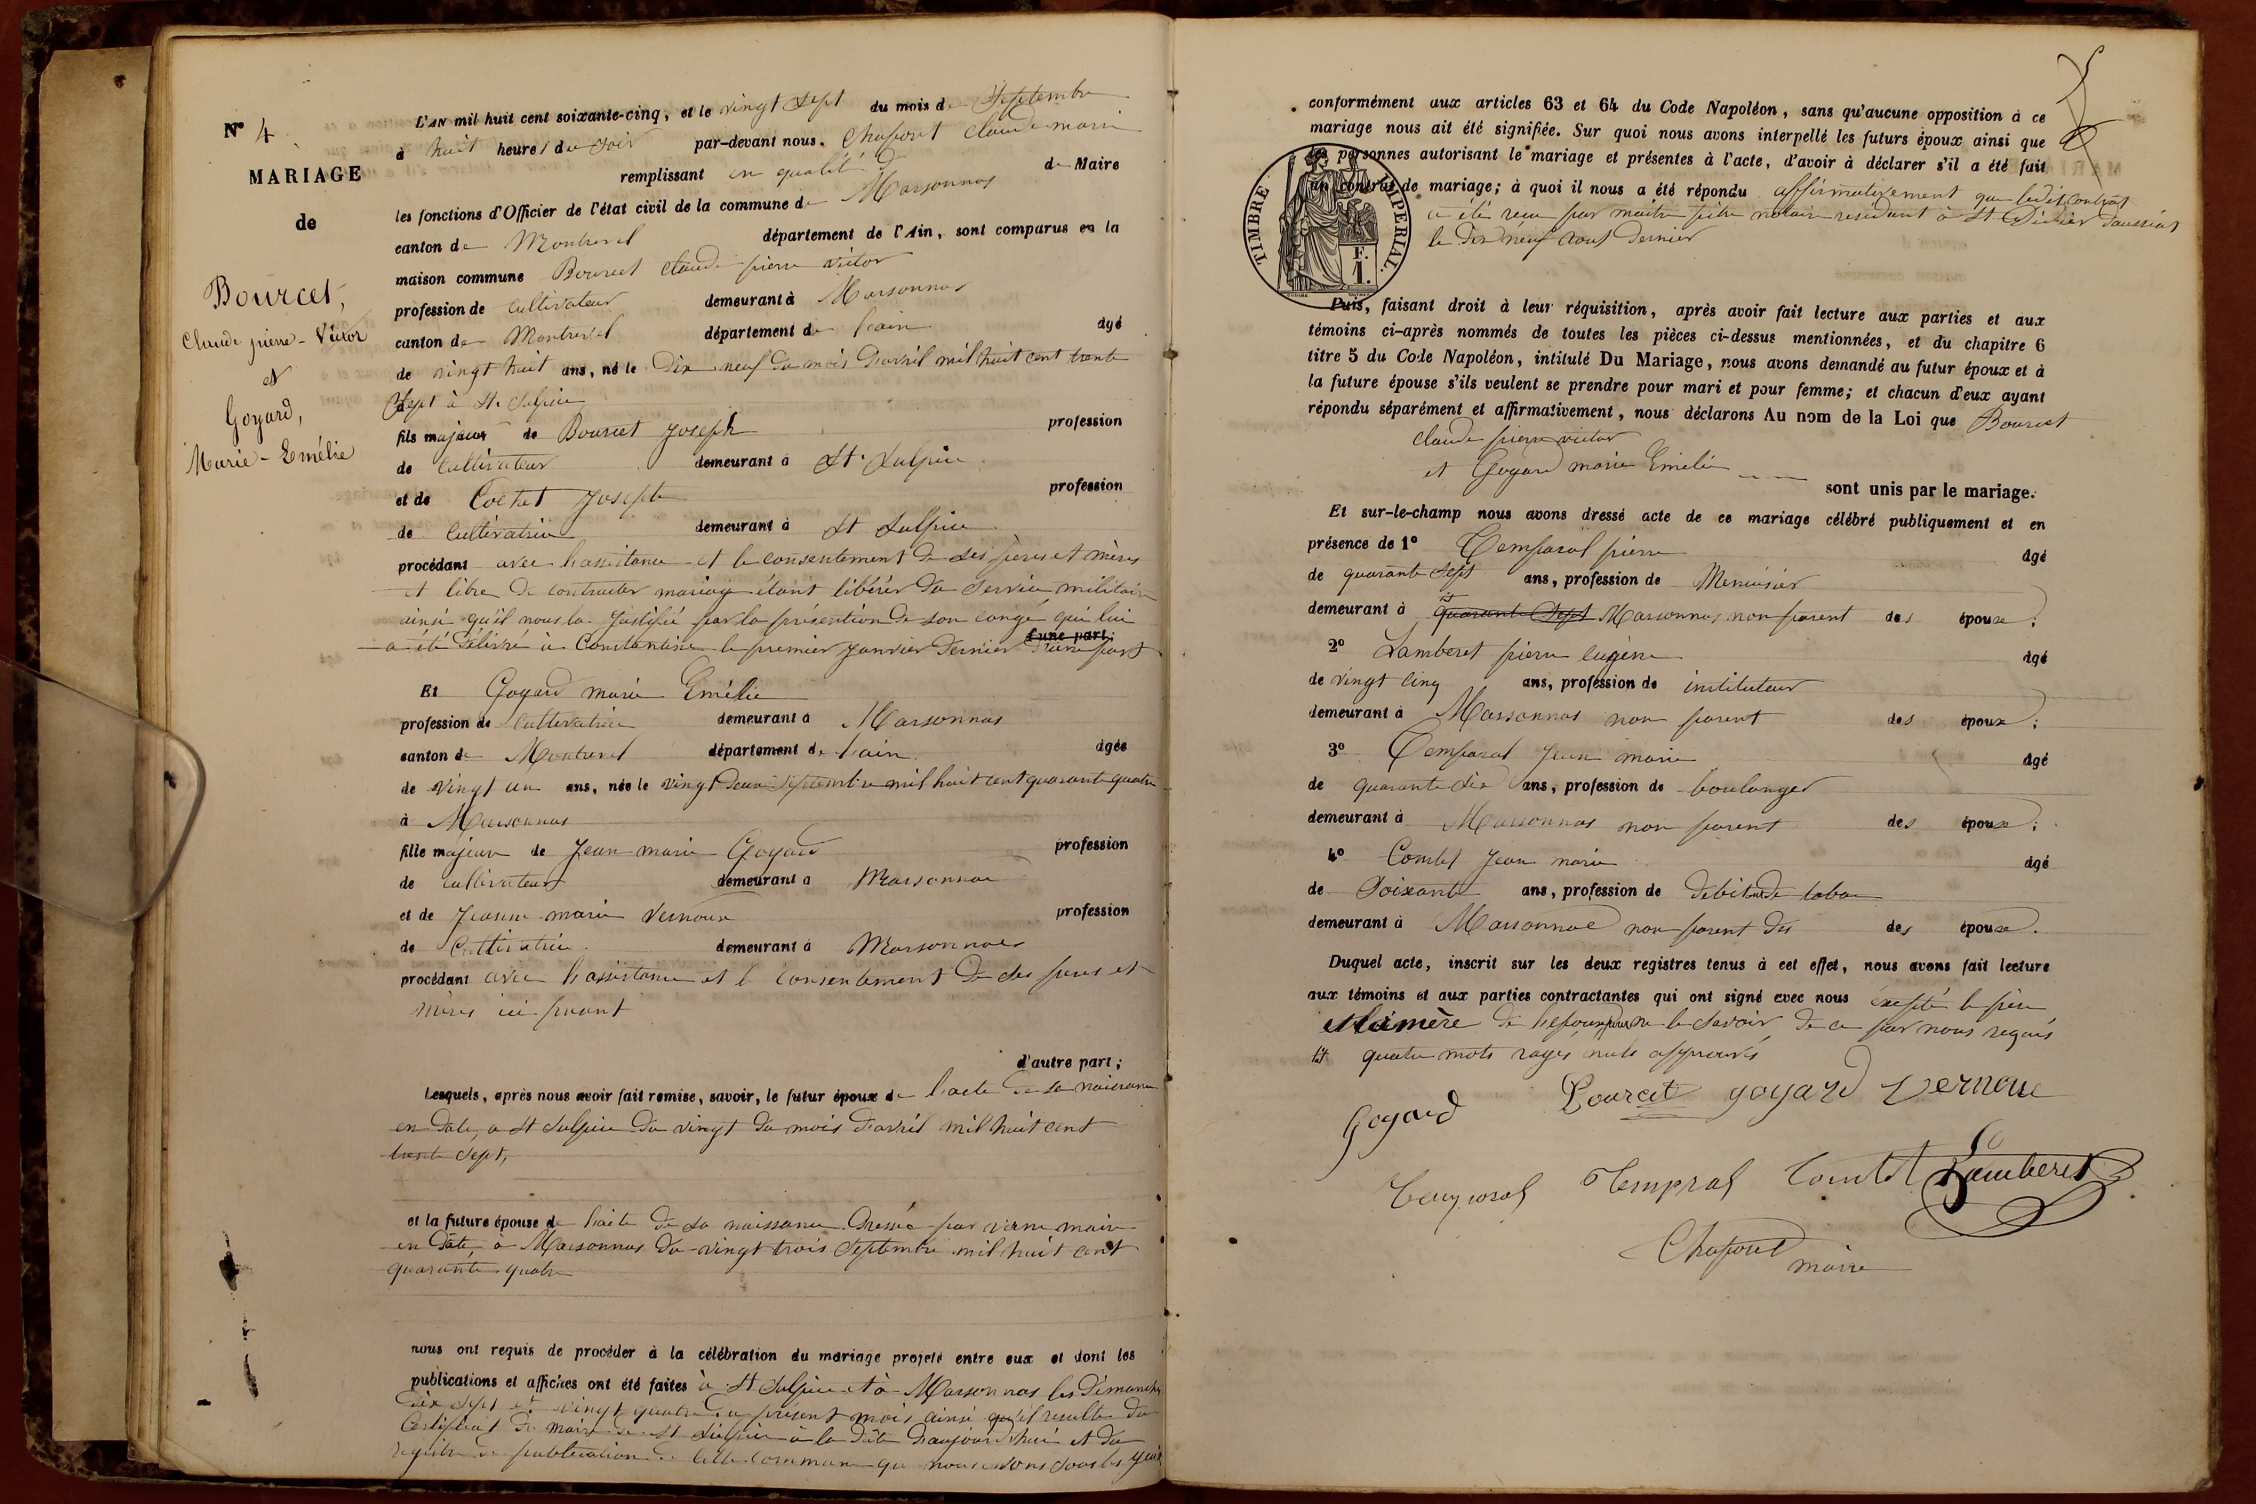 N° 4
MARIAGE
de
Bourcet,
Claude pierre - Victor
et
Goyard,
Marie - Emélie
L'AN mil huit cent soixante-cinq, et le vingt sept du mois de Septembre
à huit heures du soir par-devant nous. Chaposet Claude marie
remplissant en qualité de Maire
les fonctions d'Officier de l'état civil de la commune de Marsonnas
canton de Montrevel département de l'Ain, sont comparus en la
maison commune Bourcet Claude pierre victor
profession de Cultivateur demeurant à Marsonnas
canton de Montrevel département de l'ain âgé
de vingt huit ans, né le Dix neuf du mois d'avril mil huit cent trente
Sept à St Sulpice
fils majeur de Bourcet joseph profession
de Cultivateur demeurant à St Sulpice
et de Cochet josephte profession
de Cultivatrice demeurant à St Sulpice
procédant avec l'assistance et le consentement de ses pères et mères
et libre de contracter mariage étant libérér du Service militaire
ainsi qu'il nous la justifié par la présention de son congé qui lui
d'une part;
a été délivré à Constantine le premier janvier dernier d'une part
Et Goyard marie Emélie
profession de Cultivatrice demeurant à Marsonnas
canton de Montrevel département de l'ain âgée
de vingt un ans, née le vingt deux septembre mil huit cent quarante quatre
à Marsonnas
fille majeure de Jean marie Goyard profession
de cultivateur demeurant à Marsonnas
et de Jeanne marie Vernoux profession
de Cultivatrice demeurant à Marsonnas
procédant avec l'assistance et le consentement de ses pères et
mères ici présent
d'autre part;
Lesquels, après nous avoir fait remise, savoir, le futur époux de l'acte de sa naissance
en date, a St Sulpice du vingt du mois d'avril mil huit cent
trente sept,
et la future épouse de l'acte de sa naissance Dressée par verne maire
en date, à Marsonnas du vingt trois Septembre mil huit cent
quarante quatre
nous ont requis de procéder à la célébration du mariage projeté entre eux et dont les
publications et affiches ont été faites à St Sulpice et à Marsonnas les Dimanches
dix sept et vingt quatre du présent mois ainsi qu'il resulte du
Certificat du maire de St Sulpice à la date d'aujourd'hui et du
registre de publication de cette commune que nous avons sous les yeux
conformément aux articles 63 et 64 du Code Napoléon, sans qu'aucune opposition à ce
mariage nous ait été signifiée. Sur quoi nous avons interpellé les futurs époux ainsi que
les personnes autorisant le mariage et présentes à l'acte, d'avoir à déclarer s'il a été fait
un contrat de mariage; à quoi il nous a été répondu affirmativement que ledit contrat
a été reçu par maitre notaire residant à St Didier Daussiat
le Dix neuf aout dernier
TIMBRE IMPERIAL.
F.
1.
Puis, faisant droit à leur réquisition, après avoir fait lecture aux parties et aux
témoins ci-après nommés de toutes les pièces ci-dessus mentionnées, et du chapitre 6
titre 5 du Code Napoléon, intitulé Du Mariage, nous avons demandé au futur époux et à
la future épouse s'ils veulent se prendre pour mari et pour femme; et chacun d'eux ayant
répondu séparément et affirmativement, nous déclarons Au nom de la Loi que Bourcet
claude pierre victor
et Goyard marie Emélie
sont unis par le mariage.
Et sur-le-champ nous avons dressé acte de ce mariage célébré publiquement et en
présence de 1° Temporal pierre âgé
de quarante sept ans, profession de Menuisier
demeurant à quarante sept Marsonnas non parent des époux;
2° Lamberet pierre eugène âgé
de vingt cinq ans, profession de instituteur
demeurant à Marsonnas non parent des époux;
3° Temporal Jean marie âgé
de quarante dix ans, profession de boulanger
demeurant à Marsonnas non parent des époux;
4° Combet Jean marie âgé
de Soixante ans, profession de debit de tabac
demeurant à Marsonnas non parent des des époux.
Duquel acte, inscrit sur les deux registres tenus à cet effet, nous avons fait lecture
aux témoins et aux parties contractantes qui ont signé avec nous excepté le père
et la mère de l'epoux pour ne le savoir de ce par nous requis
quatre mots rayés nuls approuvés
Goyard Bourcet goyard Vernoux
Temporal Temporal Combet Lamberet
Chaposet
maire